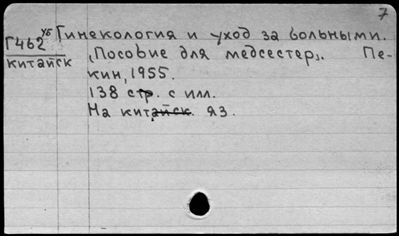 7
Г462 уб Гинекология и уход за больными.
китайск „Пособие для медсестер„. Пе-
кин, 1955.
138 стр. с илл.
На китайск. яз.